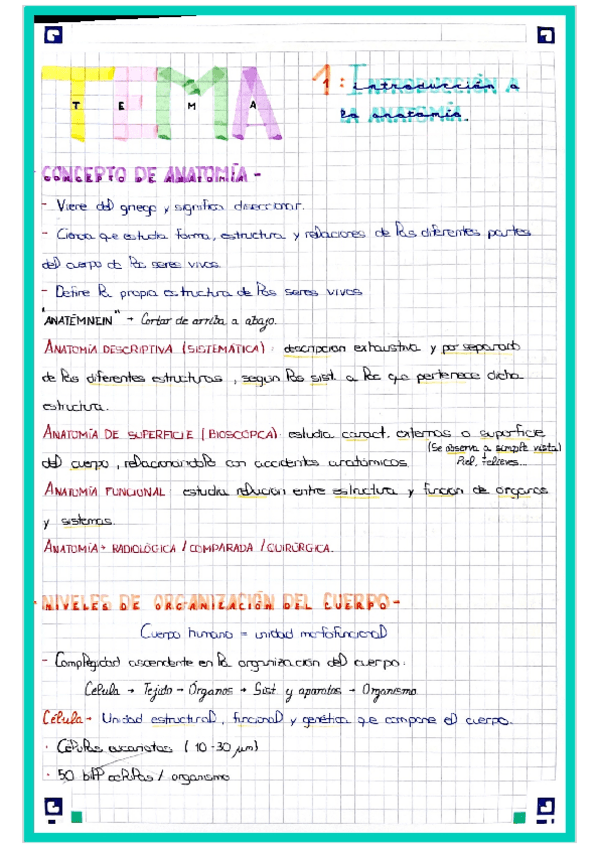 TEMA
1: Introducción a
la anatomía.
CONCEPTO DE ANATOMÍA -
- Viene del griego y significa diseccionar.
- Ciencia que estudia forma, estructura y relaciones de las diferentes partes
del cuerpo de los seres vivos.
- Define la propia estructura de los seres vivos
"ANATÉMNEIN" → Cortar de arriba a abajo.
ANATOMÍA DESCRIPTIVA (SISTEMÁTICA): descripción exhaustiva y por separado
de las diferentes estructuras, según los sist. a los que pertenece dicha
estructura.
ANATOMÍA DE SUPERFICIE (BIOSCÓPICA): estudia caract. externas o superficie
(Se observa a simple vista)
del cuerpo, relacionandola con accidentes anatómicos.
Piel, relieves...
ANATOMÍA FUNCIONAL: estudia relación entre estructura y función de órganos
y sistemas.
ANATOMÍA → RADIOLÓGICA / COMPARADA / QUIRÚRGICA.
· NIVELES DE ORGANIZACIÓN DEL CUERPO -
Cuerpo humano = unidad morfofuncional
- Complegidad ascendente en la organización del cuerpo:
Célula → Tejido → Órganos → Sist y aparatos → Organismo
Célula → Unidad estructural, funcional y genética que compone el cuerpo.
· Células eucariotas (10-30 µm)
· 50 bill células / organismo